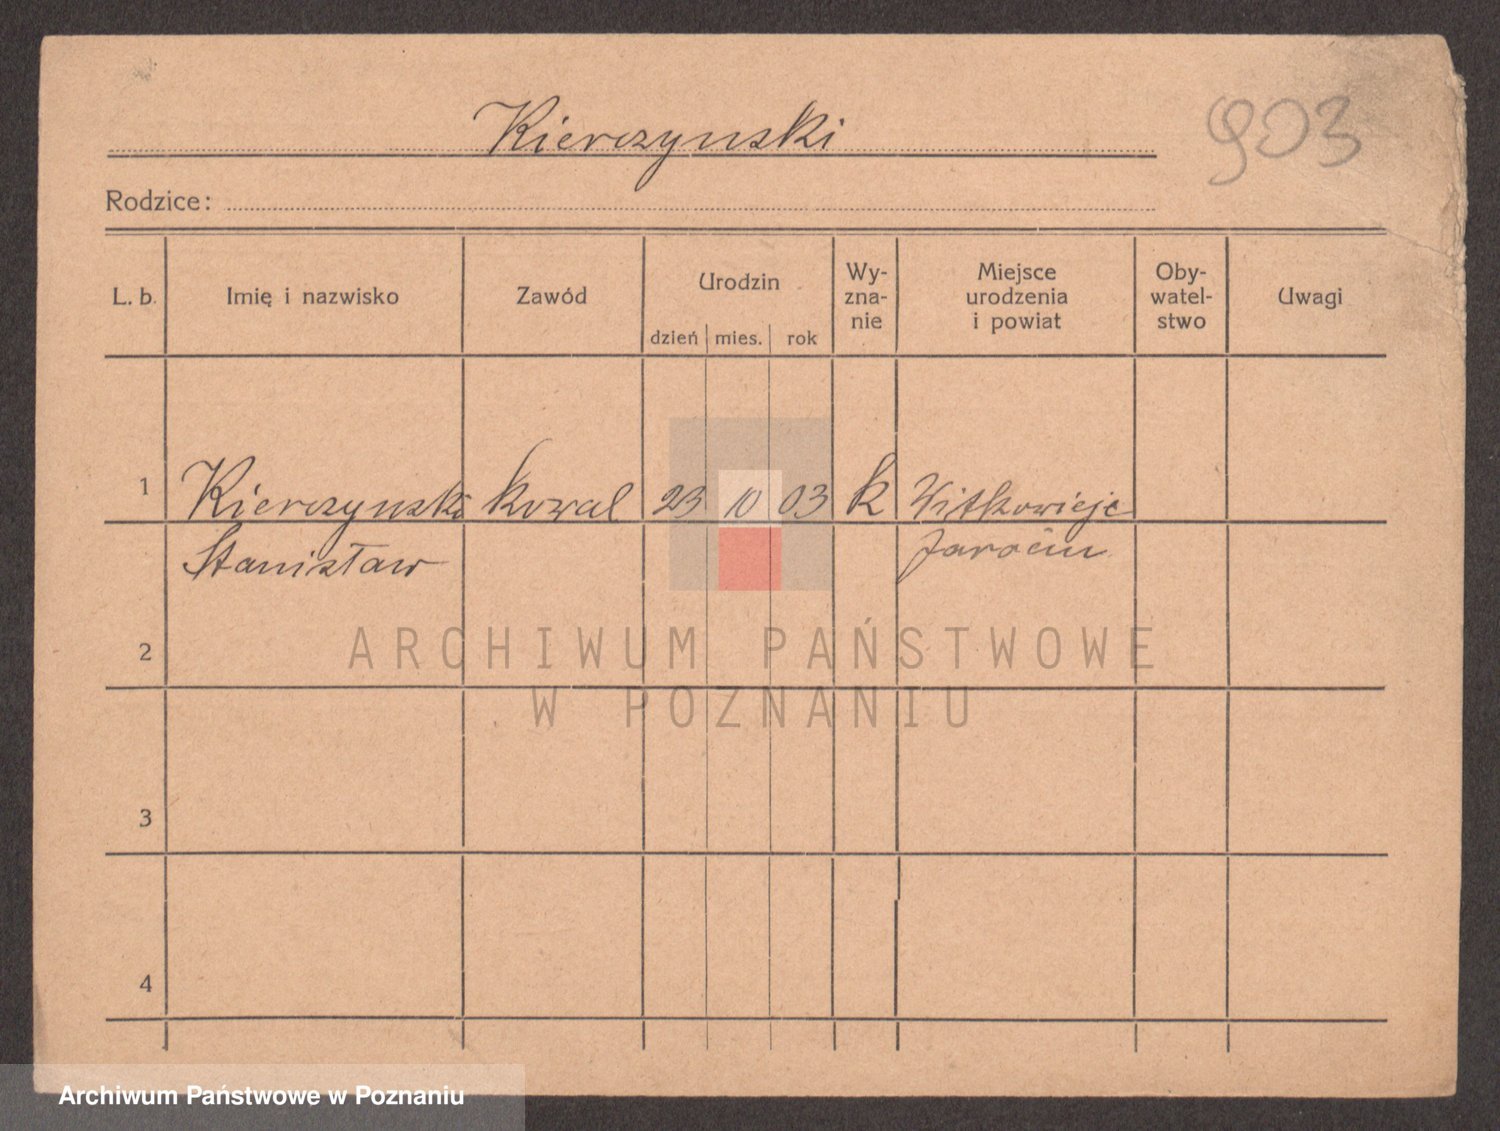 Kierczynski
903
Rodzice:
L. b. Imię i nazwisko Zawód Urodzin dzień mies. rok Wy-zna-nie Miejsce urodzenia i powiat Oby-watel-stwo Uwagi
1 Kierczynski kowal 23 10 03 k
Stanisław Jarocin
2
ARCHIWUM PAŃSTWOWE
W POZNANIU
3
4
Archiwum Państwowe w Poznaniu